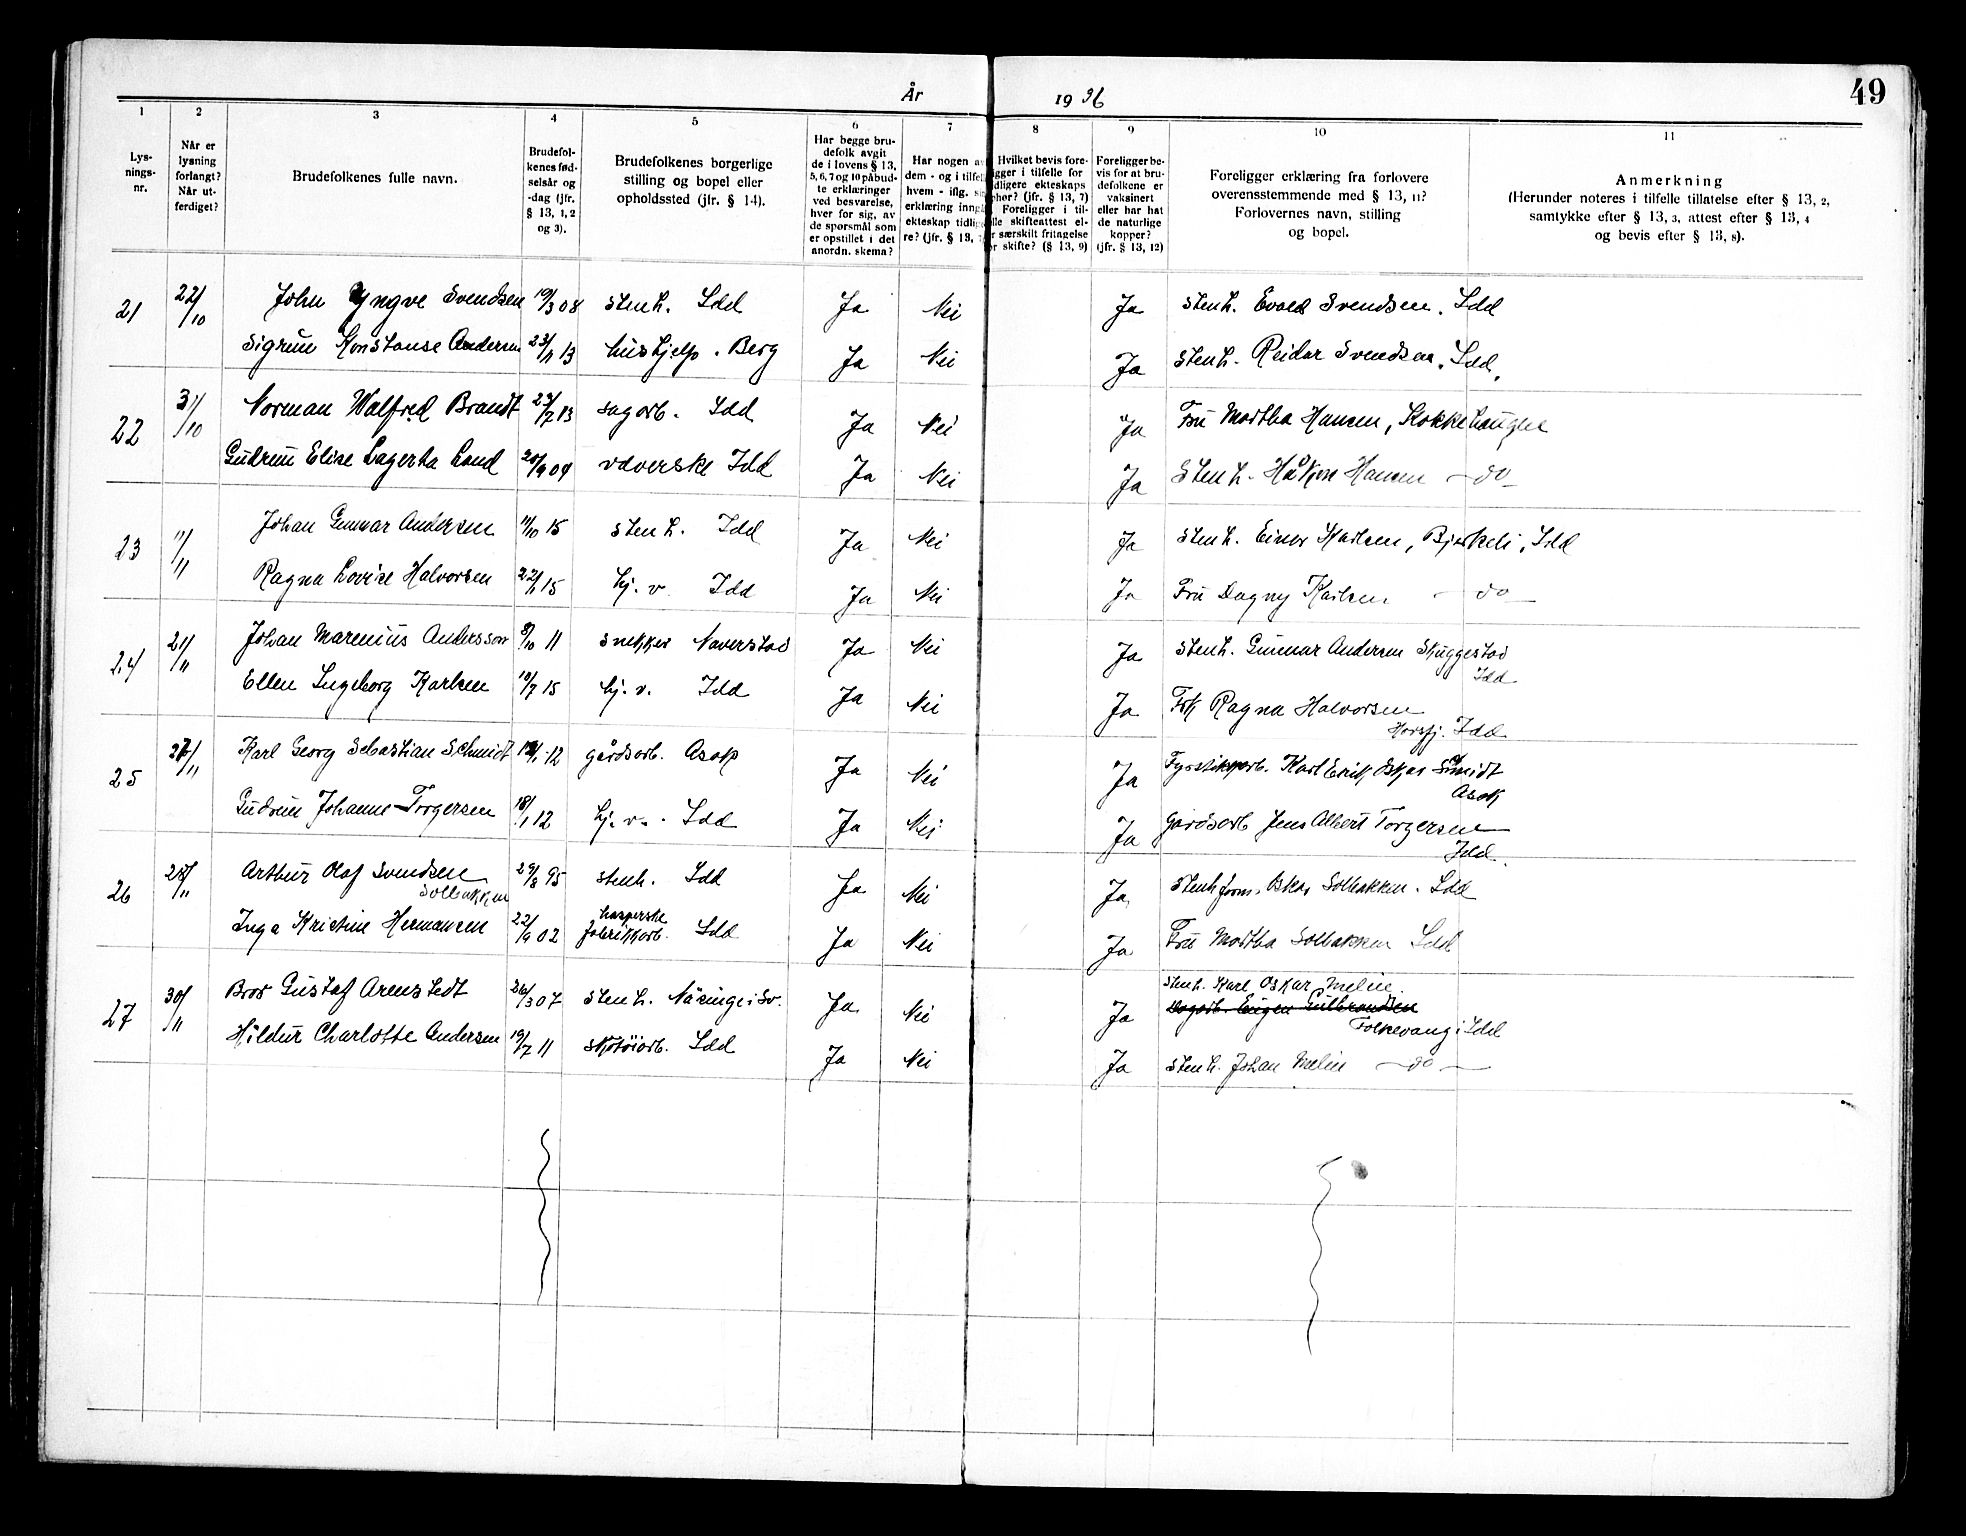 49
År 1936
1 2 3 4 5 6 7 8 9 10 11
Lys-
nings-
nr.
Når er
lysning
forlangt?
Når ut-
ferdiget?
Brudefolkenes fulle navn.
Brudefol-
kenes fød-
selsår og
-dag (jfr.
§ 13, 1, 2
og 3).
Brudefolkenes borgerlige
stilling og bopel eller
opholdssted (jfr. § 14).
Har begge bru-
defolk avgit
de i lovens § 13,
5, 6, 7 og 10 påbud-
te erklæringer
ved besvarelse,
hver for sig, av
de spørsmål som
er opstillet i det
anordn. skema?
Har nogen av
dem - og i tilfelle
hvem - iflg.
erklæring inngåt
ekteskap tidlige-
re? (jfr. § 13,
Hvilket bevis fore-
ligger i tilfelle for
tidligere ekteskaps
ophør? (jfr. § 13, 7)
Foreligger i til-
felle skifteattest el-
ler særskilt fritagelse
for skifte? (§ 13, 9)
Foreligger be-
vis for at bru-
defolkene er
vaksinert
eller har hat
de naturlige
kopper?
(jfr. § 13, 12)
Foreligger erklæring fra forlovere
overensstemmende med § 13, 11?
Forlovernes navn, stilling
og bopel.
Anmerkning
(Herunder noteres i tilfelle tillatelse efter § 13, 2,
samtykke efter § 13, 3, attest efter § 13, 4
og bevis efter § 13, 8).
21 22/10 John Yngve Svendsen 19/3 08 stenh. Idd Ja Nei Ja Stenh. Evald Svendsen. Idd
Sigrun Konstanse Andersen 23/1 13 hushjelp. Berg Ja Nei Ja Stenh. Reidar Svendsen, Idd,
22 31/10 Norman Walfred Brandt 23/7 13 sagarb. Idd Ja Nei Ja Fru Martha Hansen, Kokkehaugen
Gudrun Elise Lagerta Lund 20/9 04 væverske Idd Ja Nei Ja Stenh. Håkon Hansen - do -
23 11/11 Johan Gunnar Andersen 11/10 15 stenh. Idd Ja Nei Ja Stenh. Einar Karlsen, Bjerkeli, Idd
Ragna Lovise Halvorsen 22/1 15 hj. v. Idd Ja Nei Ja Fru Dagny Karlsen - do -
24 21/11 Johan Marenius Andersson 9/10 11 snekker Naverstad Ja Nei Ja Stenh. Gunnar Andersen Skuggestad
Idd
Ellen Ingeborg Karlsen 10/7 15 hj. v. Idd Ja Nei Ja Frk Ragna Halvorsen
Idd
25 27/11 Karl Georg Sebastian Schmidt 12 gårdsarb. Asak Ja Nei Ja Fyrstikkarb. Karl Erik Oskar Schmidt
Asak
Gudrun Johanne Torgersen 18/1 12 hj. v. Idd Ja Nei Ja Gårdsarb Jens Albert Torgersen
Idd.
26 28/11 Arthur Olaf Svendsen 29/8 95 stenh. Idd Ja Nei Ja Stenh.form. Oskar Solbakken. Idd
Solbakken
Inga Kristine Hermansen 22/9 02 hasperske
fabrikkarb. Idd Ja Nei Ja Fru Martha Solbakken Idd
27 30/11 Bror Gustaf Arenstedt 26/3 07 stenh. Näsinge i Sv. Ja Nei Ja Stenh. Karl Oskar Melin.
Eugen Gulbrandsen
Folkevang i Idd
Hildur Charlotte Andersen 19/7 11 skotöiarb. Idd Ja Nei Ja stenh. Johan Melin - do -